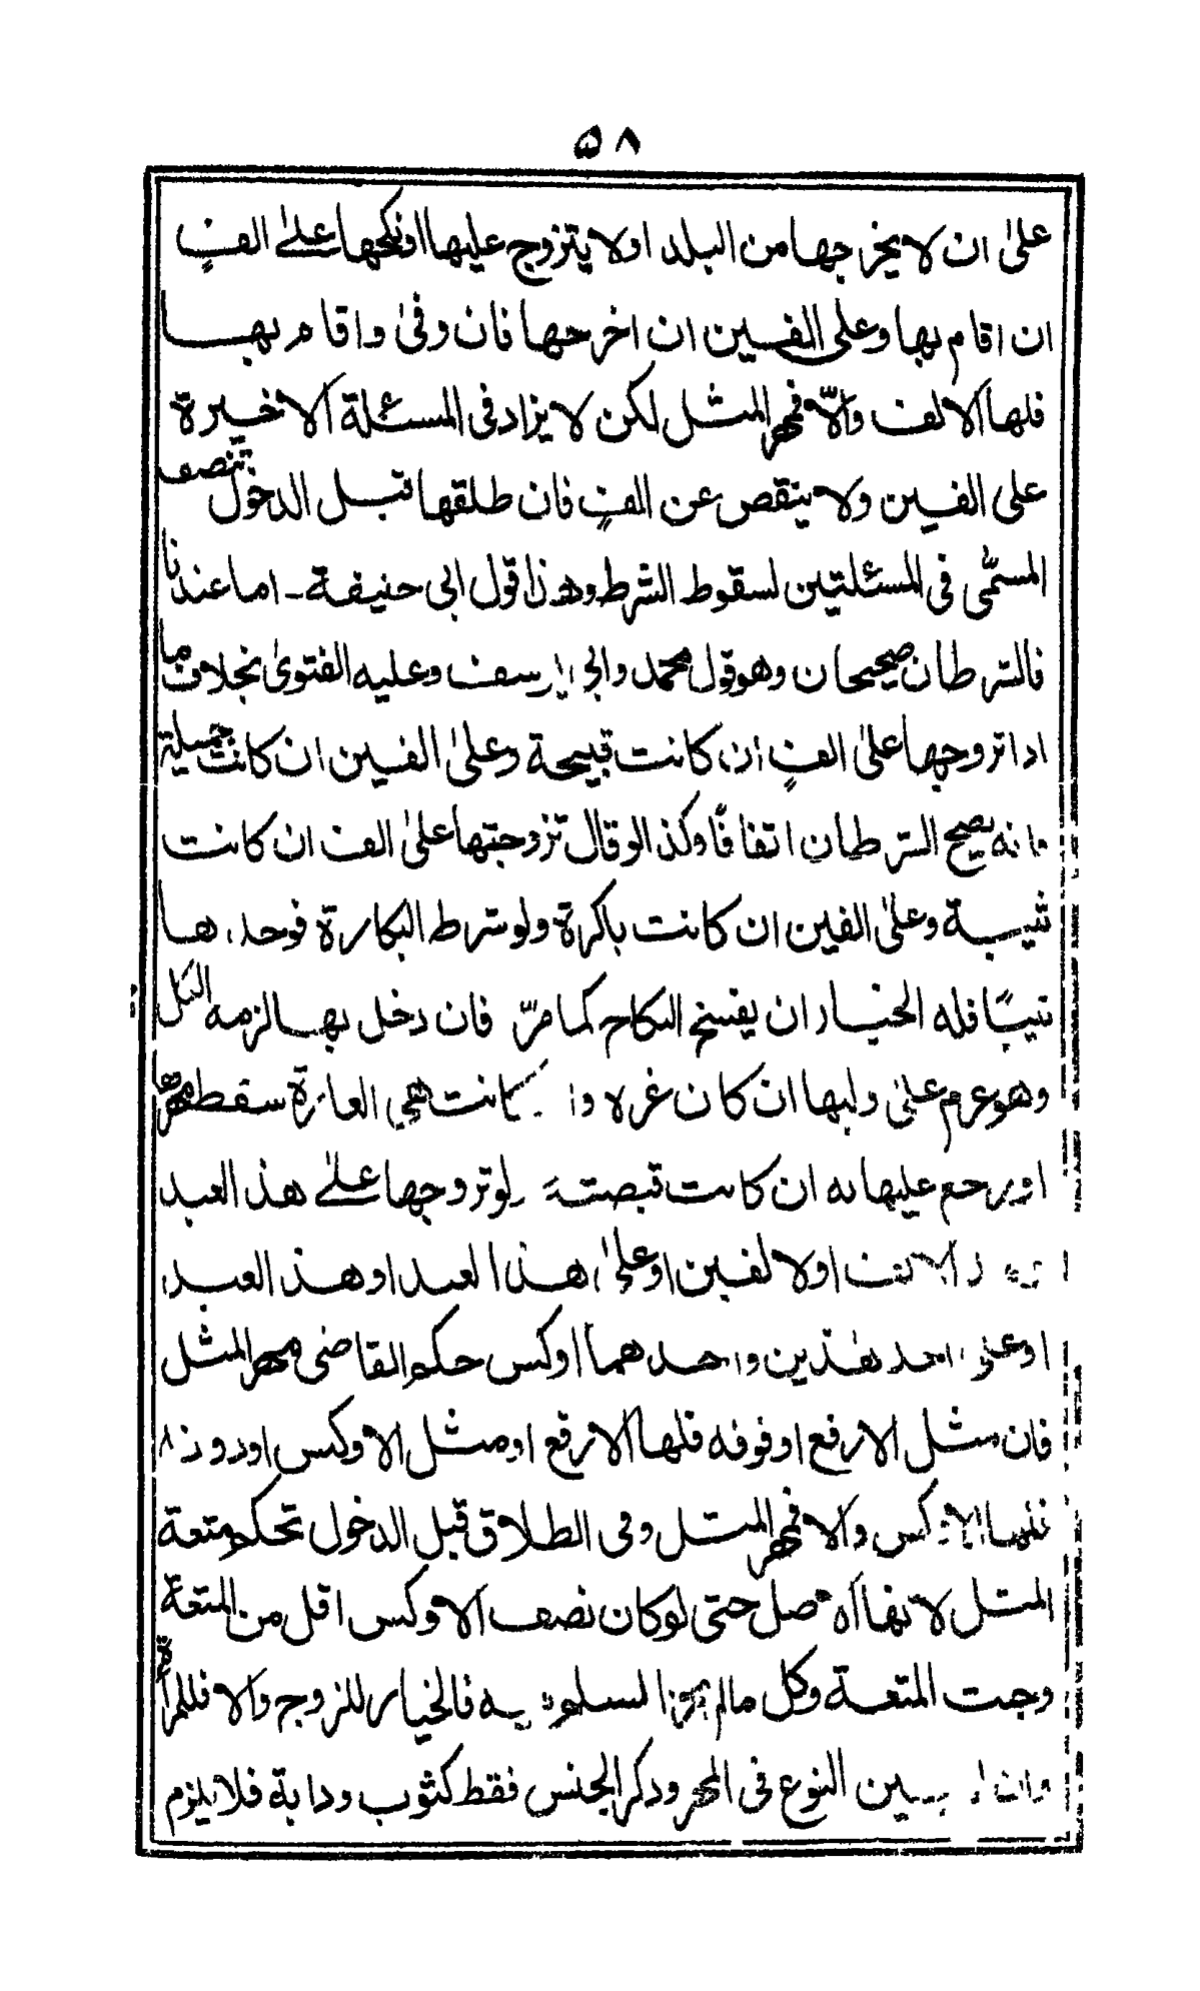 ٥٨
علىٰ ان لا يخرجها من البلد او لا يتزوج عليها او نكحها علىٰ الفٍ
ان اقام بها وعلى الفين ان اخرجها فان وفىٰ واقام بهـا
فلها الالف والّا فمهر المثل لكن لا يزاد فى المسئلة الاخيرة
على الفين ولا ينقص عن الفٍ فان طلقها قبل الدخول تنصف
المسمّى فى المسئلتين لسقوط الشرط وهذا قول ابى حنيفة ـ اما عندنا
فالشرطان صحيحان وهو قول محمد وابى يوسف وعليه الفتوىٰ بخلاف ما
اذا تزوجها علىٰ الفٍ ان كانت قبيحة وعلىٰ الفين ان كانت جميلة
فانه يصح الشرطان اتفاقًا وكذا لو قال تزوجتها علىٰ الف ان كانت
ثيبة وعلىٰ الفين ان كانت باكرة ولو شرط البكارة فوجدها
ثيبًا فله الخيار ان يفسخ النكاح كما مرّ فان دخل بها لزمه الكل
وهو عرم علىٰ وليها ان كان غره وان كانت هى الغارة سقط مهرها
او يرجع عليها به ان كانت قبضته ولو تزوجها علىٰ هذ العبد
او الالفين او علىٰ هذا العبد او هذ العبد
او على احد هٰذين واحدهما اوكس حكم القاضى بمهر المثل
فان مثل الارفع او فوقه فلها الارفع او مثل الاوكس او دونه
فلها الاوكس والا فمهر المثل وفى الطلاق قبل الدخول تحكم متعة
المثل لانها الاصل حتى لو كان نصف الاوكس اقل من المتعة
وجبت المتعة وكل ما لم يجز السلم فيه فالخيار للزوج والا فللمرأة
بين النوع فى المهر وذكر الجنس فقط كثوب ودابة فلا يلزم